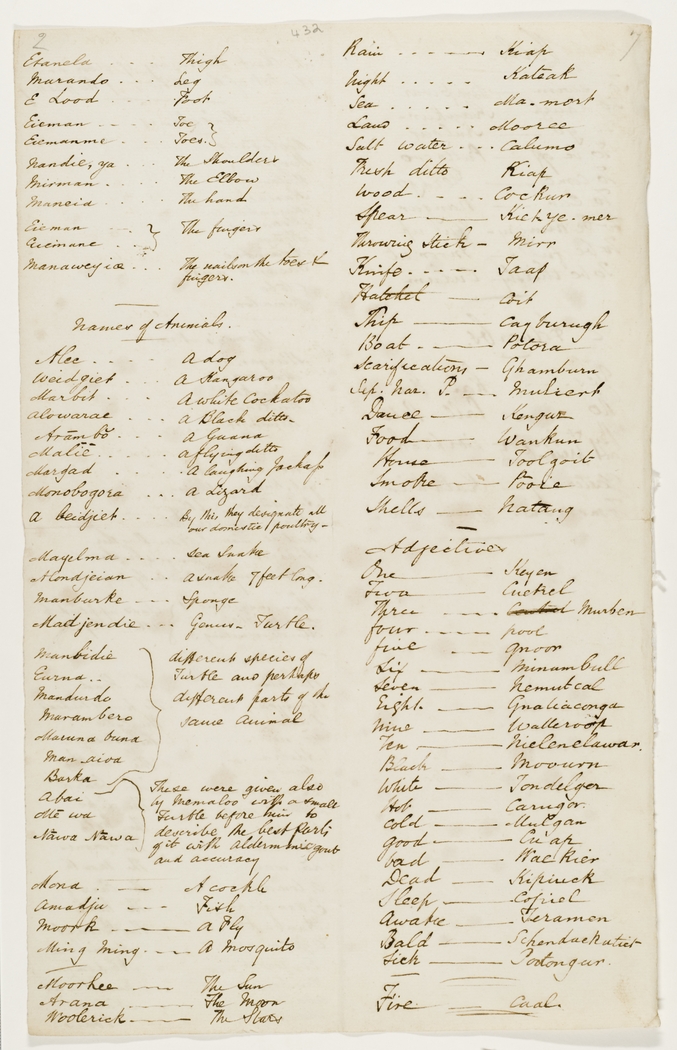 2
432
7
Etanela . . . Thigh
Murando . . . Leg
E Lood . . . Foot
Eieman . . . Toe
Eiemanme . . . Toes.
Nandie, ya . . . The Shoulders
Mirman . . . The Elbow
Maneia . . . The hand
Eieman . . } The fingers
. . }
Manaweyiæ . . . The nails on the toes &
fingers.
Names of Animals.
Alee . . . . A dog
Weidgiet . . . A Kangaroo
Marbit . . . A white Cockatoo
Alowarae . . . A Black ditto.
Arāmbō . . . A Guana
Malie . . . . a flying ditto
Margad . . . . A laughing Jackass
Monobogora . . . A Lizard
A beidjiet . . . By this they designate all
our domestic poultry—
Mayelma . . . . Sea Snake
Alondjeian . . . a snake 7 feet long.
Manburke — . . Sponge
Madjendie . . — Genus- Turtle.
Manbidie } different species of
Eurna . . Turtle and perhaps
Mandurdo different parts of the
Marambero same animal
Maruna buna
Man aiva
Burka
Abai } These were given also
Me wa by Memaloo with a small
Nawa Nawa Turtle before him to
describe the best parts
of it with aldermanic gout
and accuracy
Mona . — A cockle
Amadju — - - Fish
Moork — — A Fly
Ming Ming . - - A Mosquito
Moorhee — — The Sun
Arana — The Moon
Woolerick — — The Stars
Rain . . . . — Kiap
Night . . . . . Kateak
Sea . . . . . Ma- mort
Land . . . . . Mooree
Salt water . . . Calumo
Fresh ditto Kiap
Wood . . . . Cockur
Spear — Kiekye-mer
Throwing Stick — Mirr
Knife . . . . . Taap
Hatchet — Coit
Ship — Cayburugh
Boat . — Potora
Scarifications — Ghamburn
Sep. Nar. P. — . Mulzert
Dance — Lenguz
Food — Wankun
House — Toolgoit
Smoke — Pooie
Shells — Natang
Adjectives
One — Keyen
Two — Cuetrel
Three - - - Murben
four . - - - pool
five — gnoor
Six — Minambull
Seven — Nemutcal
Eight. — Gnaliaconga
Nine — Watteroop
Ten — Nielenelawar.
Black — Moourn
White — Tondelger
Hot — Carugor.
Cold — Mulgan
good — Cu'ap
bad — Wackier
Dead — Kipiuck
Sleep — Copiel
Awake — Teramen
Bald — Schendackutiet
Sick — Podongur.
Fire — Caal